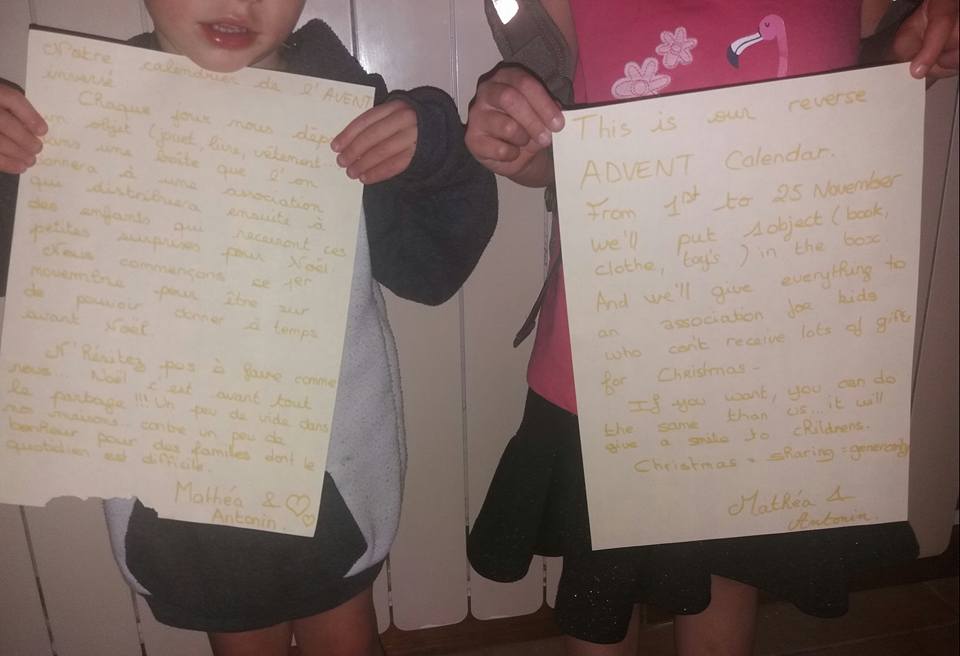 Notre calendrier de l'AVENT
inversé
Chaque jour nous dépo
un objet (jouet, livre, vêtement
dans une boîte que l'on
donnera à une association
qui distribuera ensuite à
des enfants qui recevront ces
petites surprises pour Noël.
Nous commençons ce 1er
novembre pour être sur
de pouvoir donner à temps
avant Noël.
N'Hésitez pas à faire comme
nous... Noël c'est avant tout
le partage !!! Un peu de vide dans
nos maisons... contre un peu de
bonheur pour des familles dont le
quotidien est difficile.
Mathéa &
Antonin.
This is our reverse
ADVENT Calendar.
From 1st to 25 November
we'll put 1 object (book,
clothe, toy's ) in the box.
And we'll give everything to
an association for kids
who can't receive lots of gifts
for Christmas -
If you want, you can do
the same than us... it will
give a smile to cHildrens.
Christmas = sHaring = generosity
Mathéa &
Antonin.